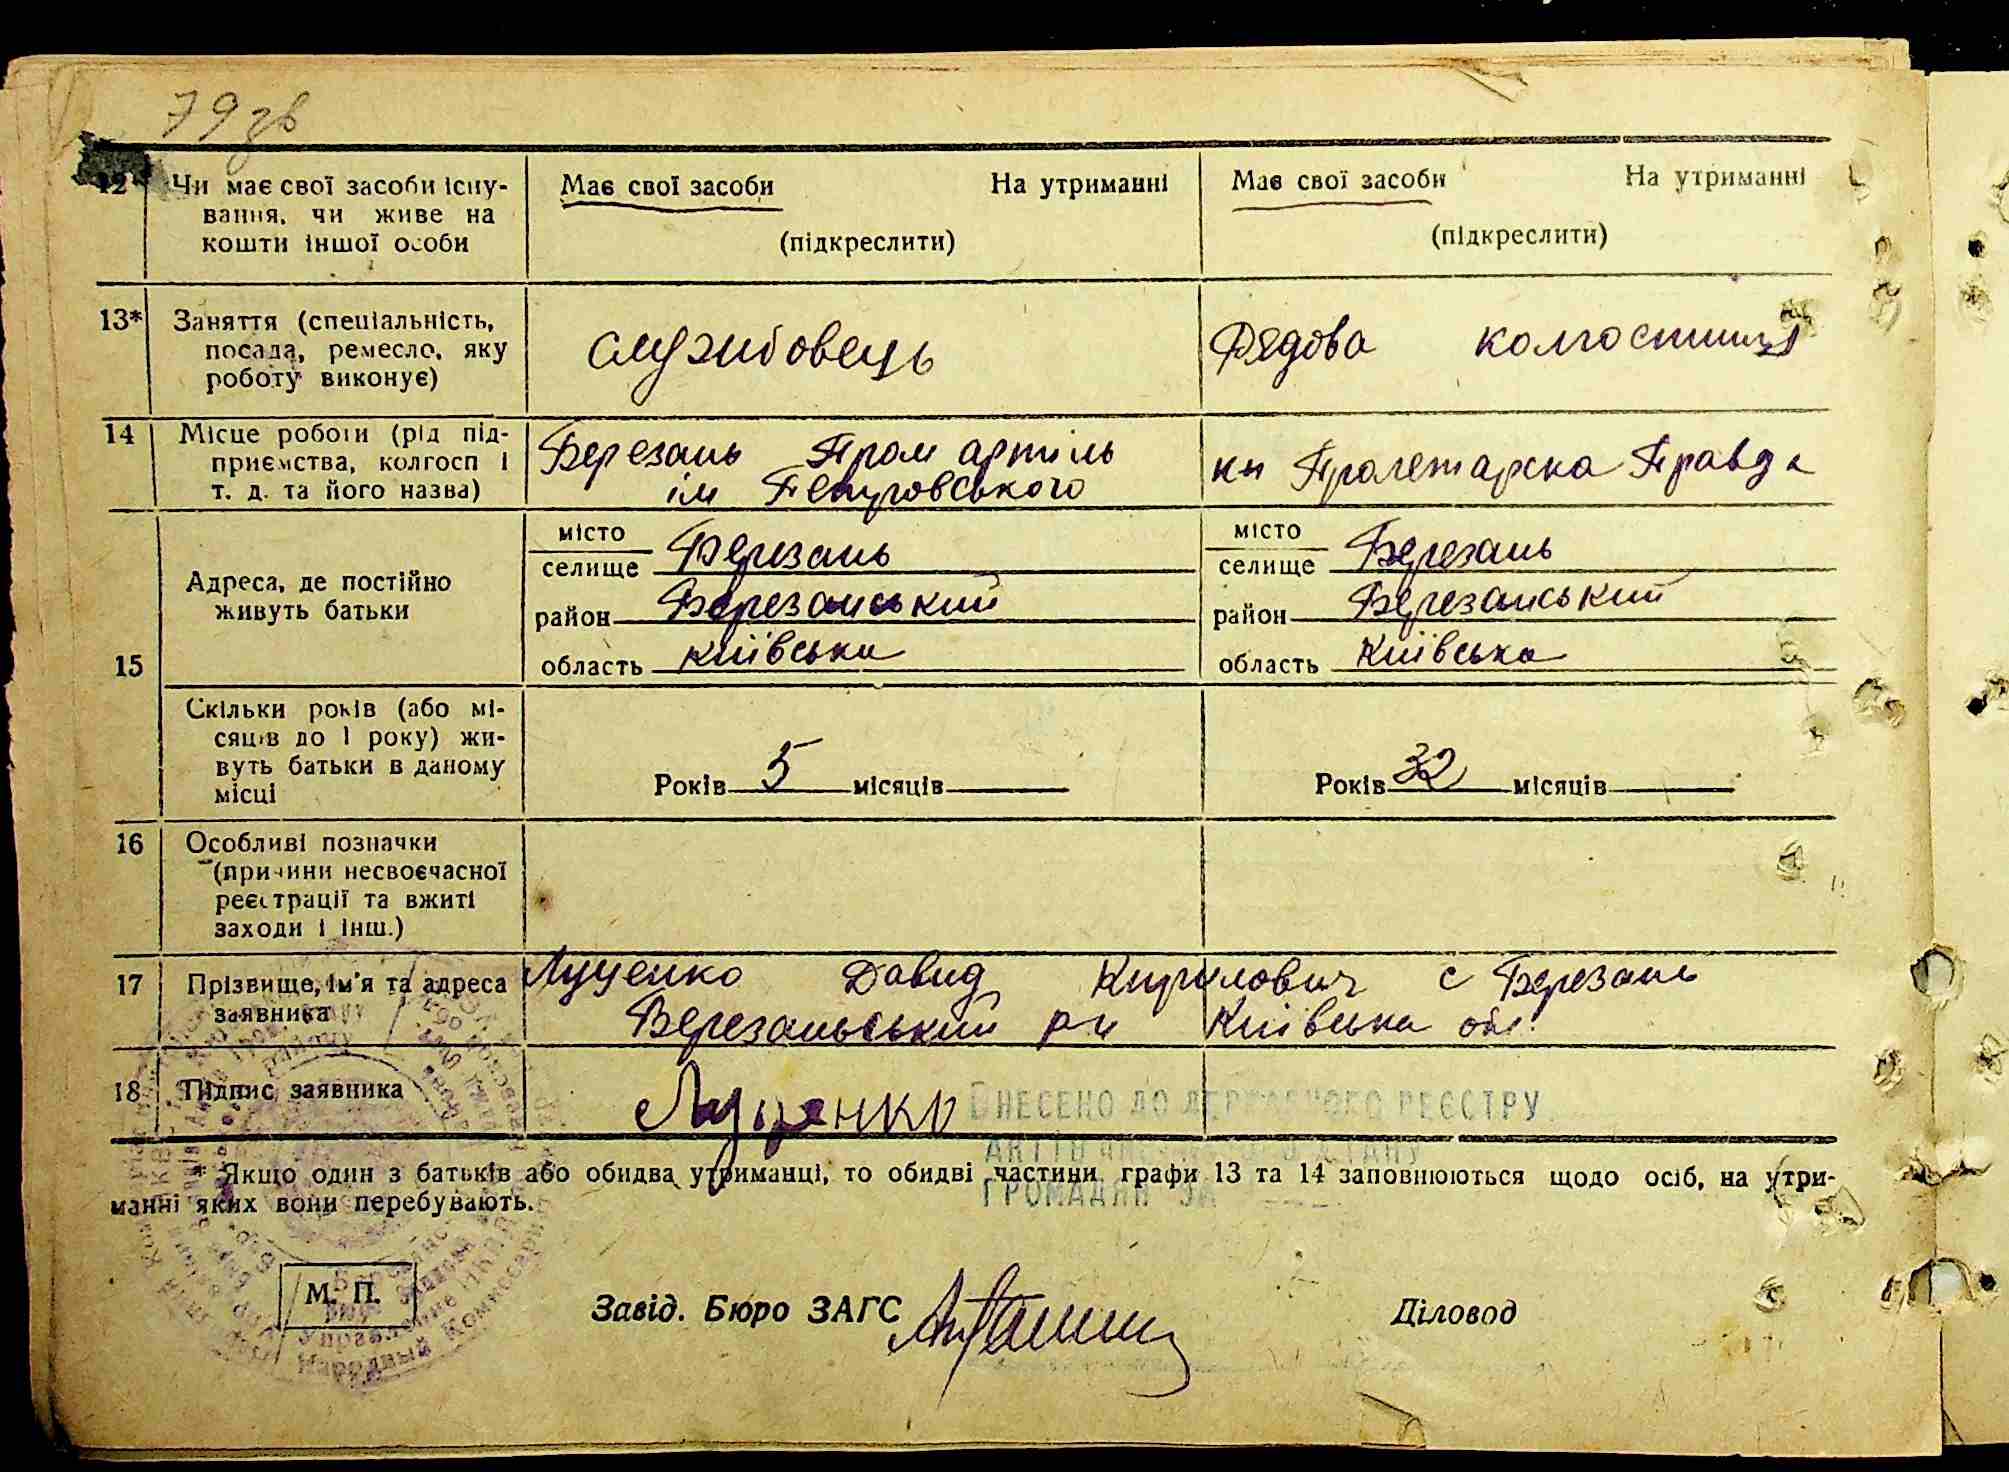 79 зв
12 Чи має свої засоби існу-
вання, чи живе на
кошти іншої особи
Має свої засоби На утриманні
(підкреслити)
Має свої засоби На утриманні
(підкреслити)
13* Заняття (спеціальність,
посада, ремесло, яку
роботу виконує)
службовець
Рядова колгоспниця
14 Місце роботи (рід під-
приємства, колгосп і
т. д. та його назва)
Березань Пром артіль
ім Петровського
кп Пролетарска Правда
15
Адреса, де постійно
живуть батьки
місто
селище Березань
район Березанський
область Київська
місто
селище Березань
район Березанський
область Київська
Скільки років (або мі-
сяців до 1 року) жи-
вуть батьки в даному
місці
Років 5 місяців
Років 32 місяців
16 Особливі позначки
(причини несвоєчасної
реєстрації та вжиті
заходи і інш.)
17 Прізвище, ім'я та адреса
заявника
Луценко Давид Кирилович с Березань
Березанський р-н Київська обл.
18 Підпис заявника
Луценко
ВНЕСЕНО ДО ДЕРЖАВНОГО РЕЄСТРУ
АКТІВ ЦИВІЛЬНОГО СТАНУ
ГРОМАДЯН ЗА
* Якщо один з батьків або обидва утриманці, то обидві частини графи 13 та 14 заповнюються щодо осіб, на утри-
манні яких вони перебувають.
М. П.
Управление
Народный Комиссариат
Завід. Бюро ЗАГС
Діловод